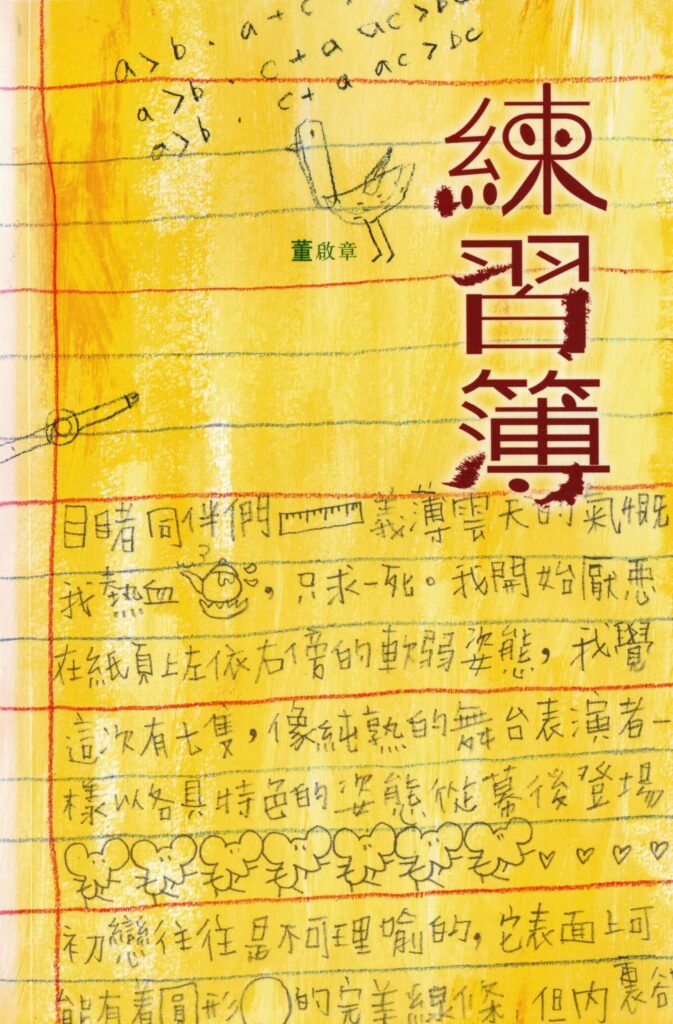 a>b . a+c
a>b . c+a ac>bc
a>b . c+a ac>bc
練習簿
董啟章
目睹同伴們義薄雲天的氣慨
我熱血，只求一死。我開始厭惡
在紙頁上左依右傍的軟弱姿態，我覺
這次有七隻，像純熟的舞台表演者一
樣以各具特色的姿態從幕後登場
初戀往往是不可理喻的，它表面上可
能有着圓形的完美線條，但內裏